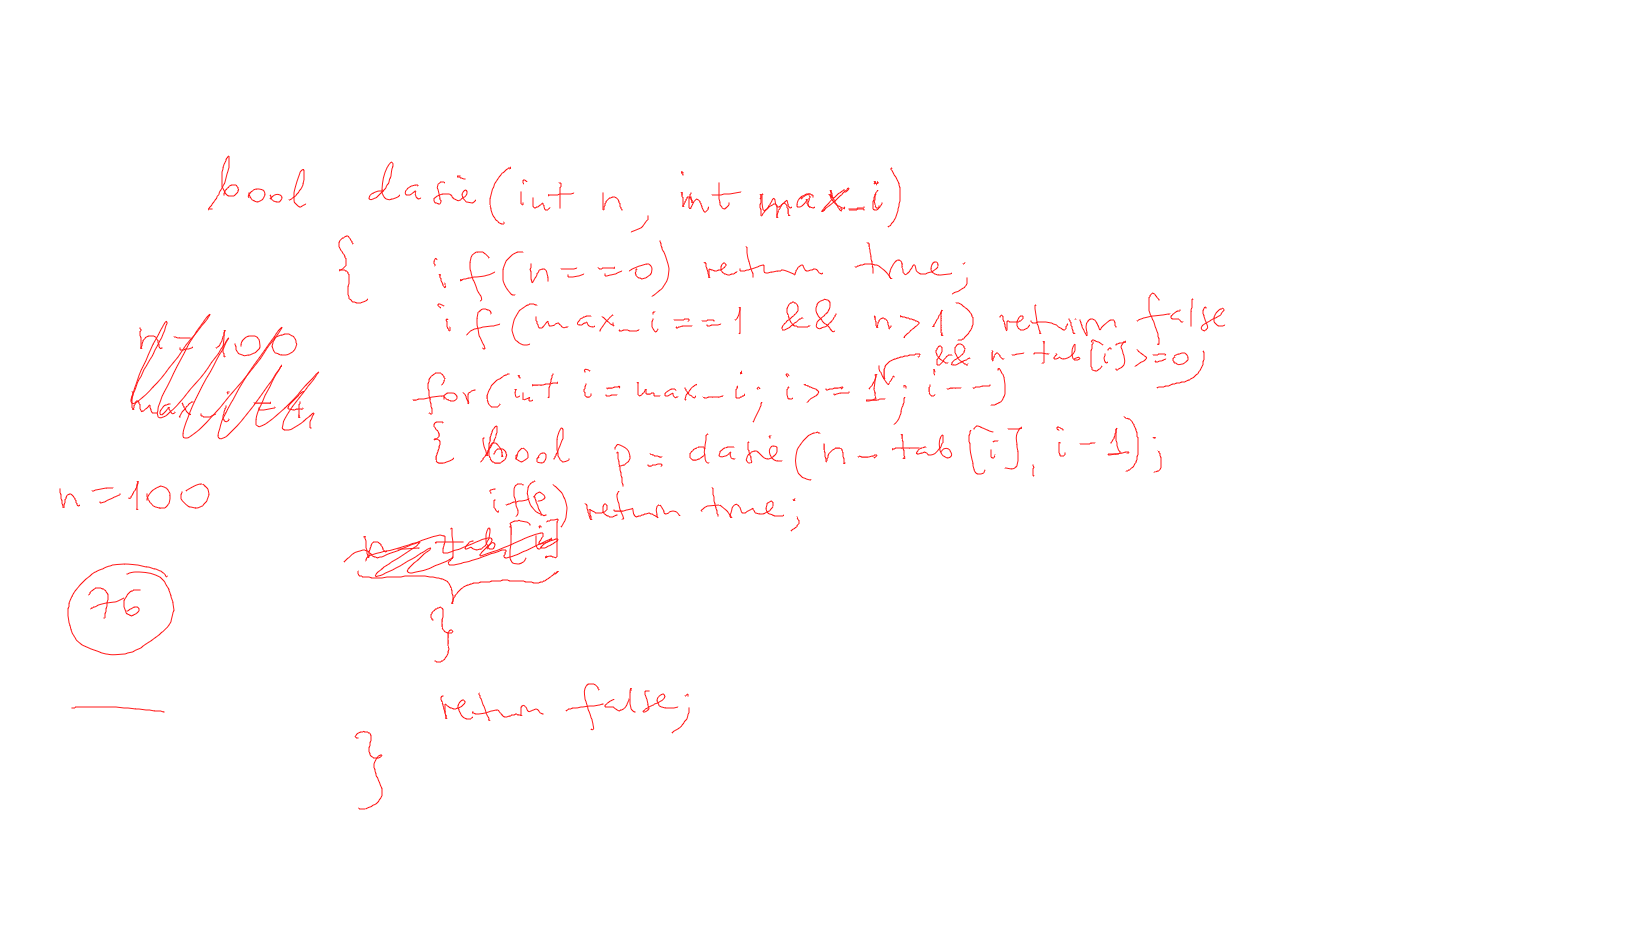 bool dasie(int n, int max_i)
{ if(n==0) return true;
if(max_i==1 && n>1) return false
&& n-tab[i]>=0
for(int i=max_i; i>=1; i--)
{ bool p = dasie(n-tab[i], i-1);
if(p) return true;
n - tab[i]
}
return false;
}
n=100
max_i
n=100
76